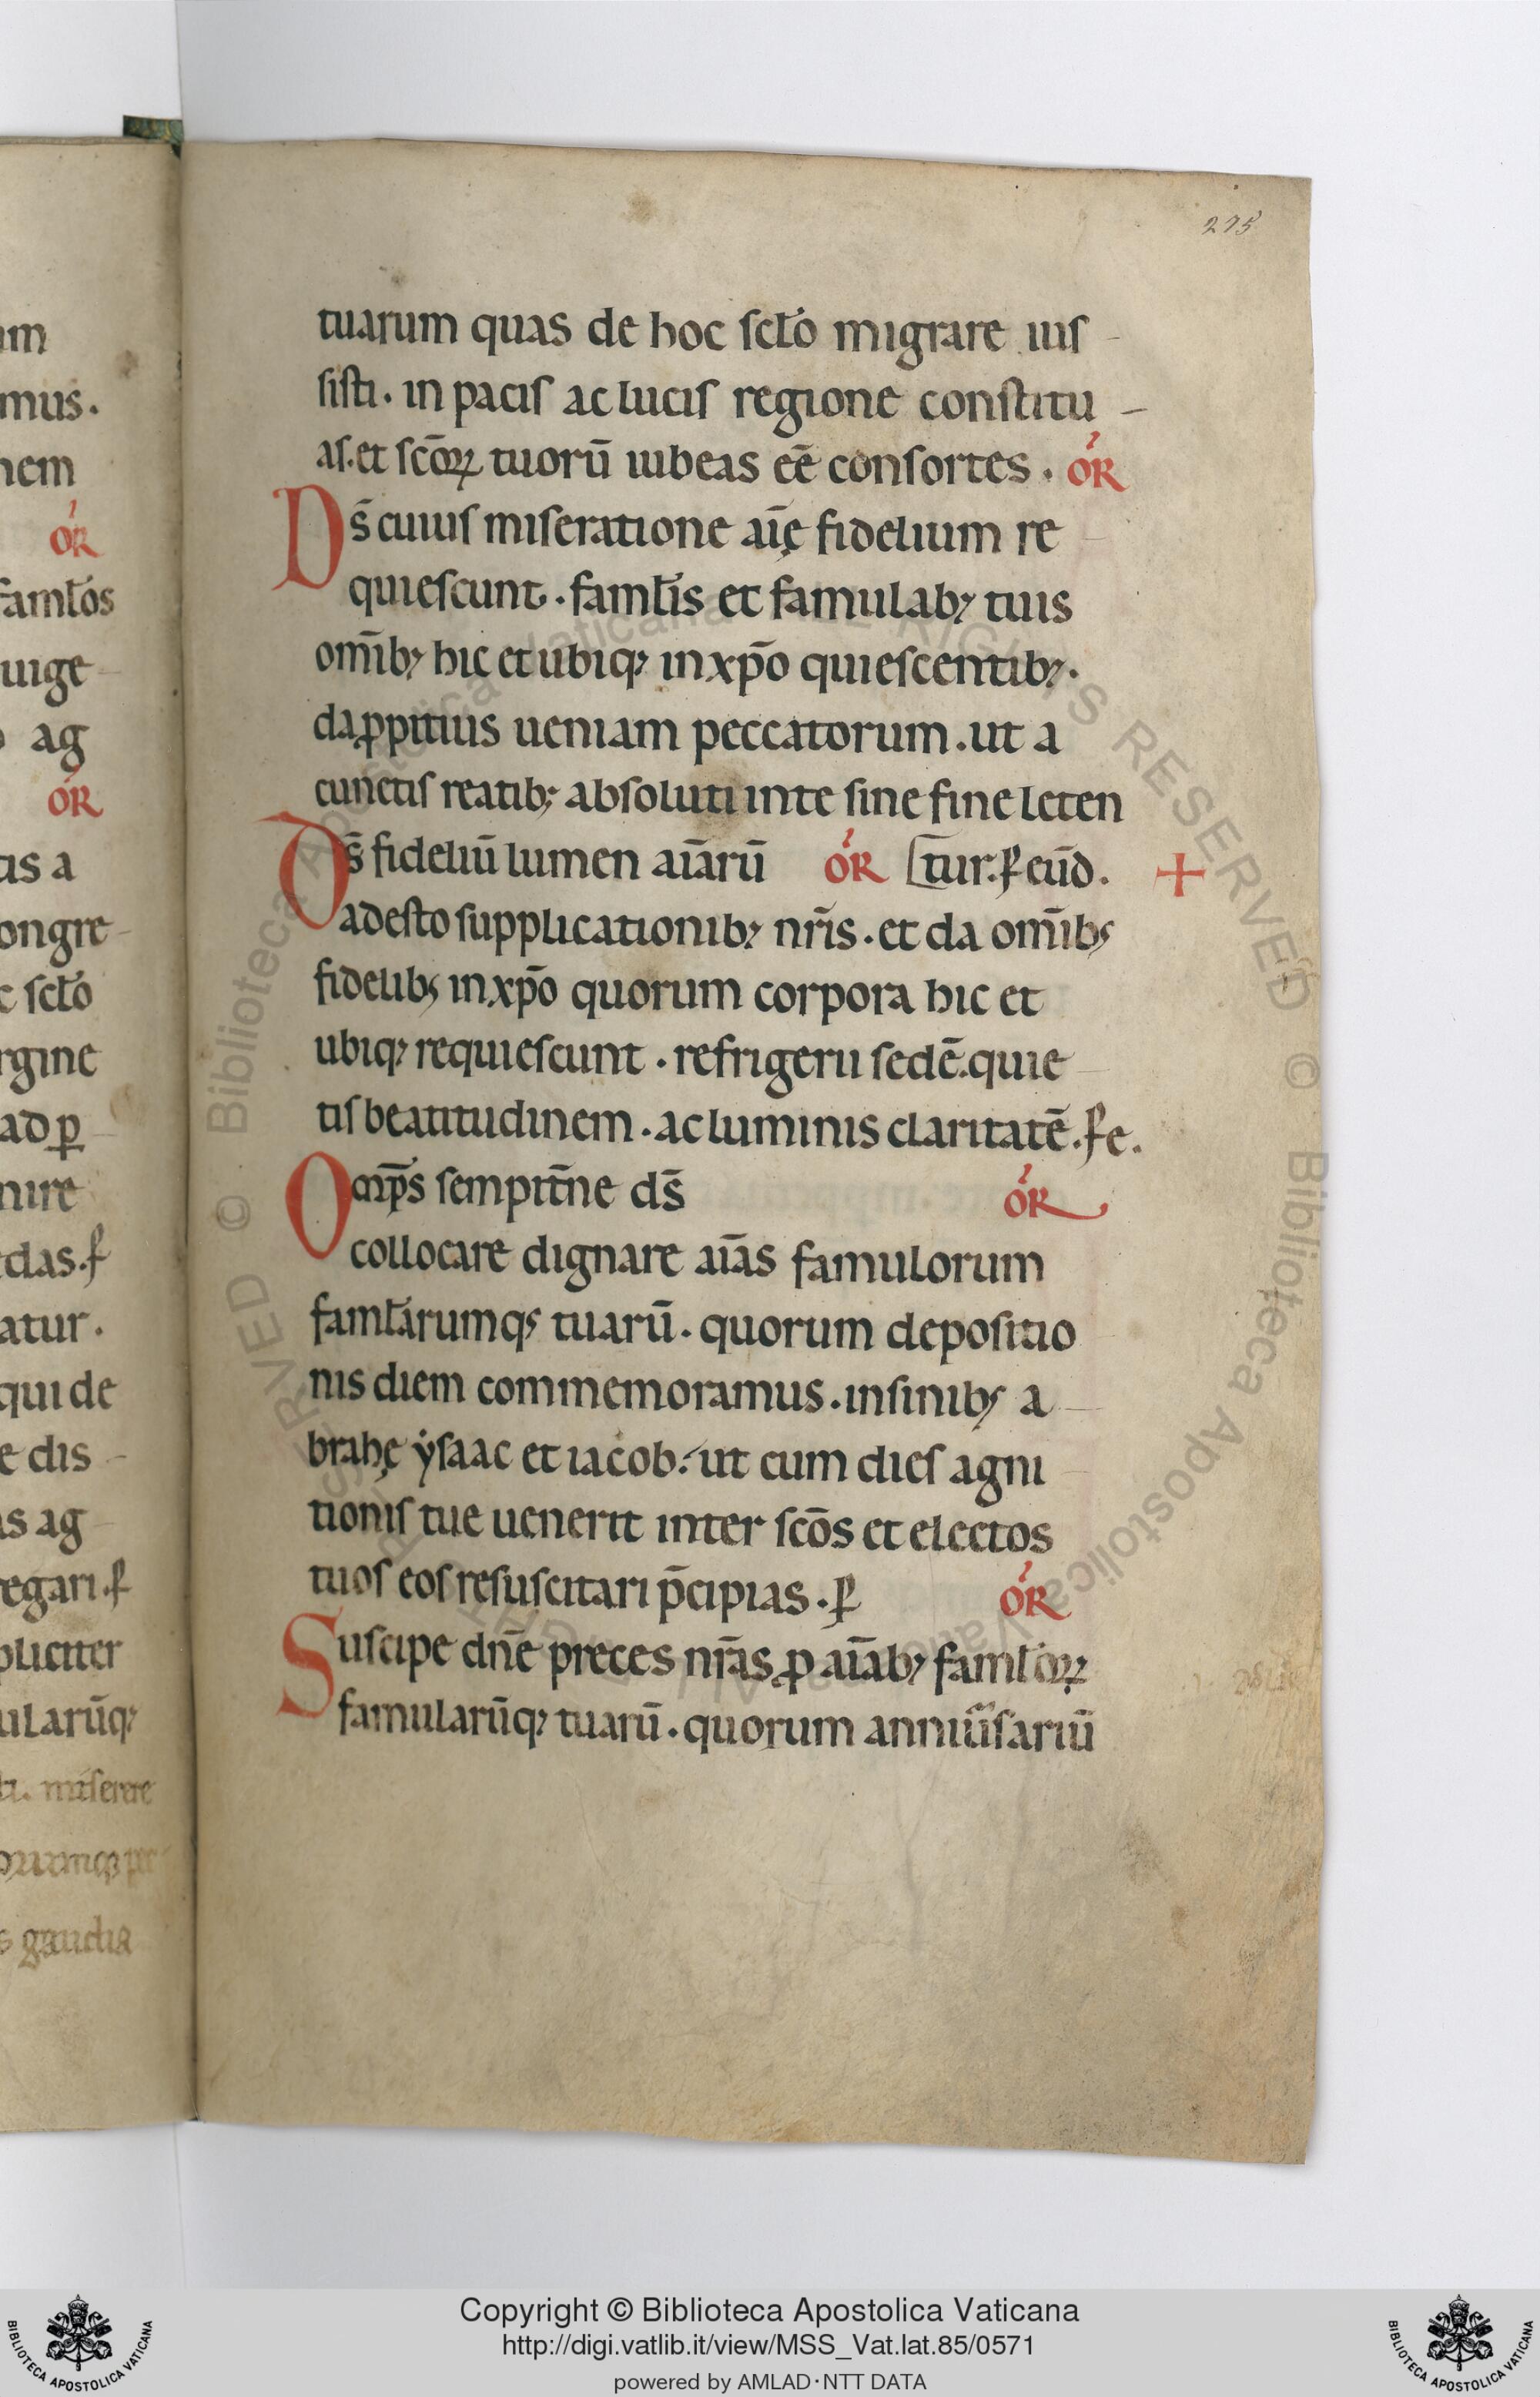 275
tuarum quas de hoc scło migrare ius
sisti. in pacis ac lucis regione constitu
as. et scōꝝ tuorū iubeas eē consortes. OR
Ds̄ cuius miseratione aīę fidelium re
quiescunt. famłis et famulabꝫ tuis
om̄ibꝫ hic et ubiqꝫ in xp̄o quiescentibꝫ.
da ꝓpitius ueniam peccatorum. ut a
cunctis reatibꝫ absoluti in te sine fine leten
Ds̄ fideliū lumen aīarū OR [t̄tur. ꝑ eūd. +
adesto supplicationibꝫ nr̄is. et da om̄ibꝫ
fidelibꝫ in xp̄o quorum corpora hic et
ubiqꝫ requiescunt. refrigerii sedē. quie
tis beatitudinem. ac luminis claritatē. ꝑ e.
Om̄ps semprt̄ne ds̄ OR
collocare dignare aīas famulorum
famłarumqꝫ tuarū. quorum depositio
nis diem commemoramus. in sinibꝫ a
brahę ẏsaac et iacob. ut cum dies agni
tionis tue uenerit inter scōs et electos
tuos eos resuscitari p̄cipias. ꝑ OR
Suscipe dn̄e preces nr̄as ꝓ aīabꝫ famłoꝝ
famularūqꝫ tuarū. quorum anniūsariū
um
mus.
nem
OR
famłos
uige
ag
OR
tis a
ongre
c scło
rgine
ad ꝑ
nire
das. ꝑ
atur.
qui de
e dis
as ag
egari. ꝑ
pliciter
ularūqꝫ
miserere
s gaudia
Copyright © Biblioteca Apostolica Vaticana
http://digi.vatlib.it/view/MSS_Vat.lat.85/0571
powered by AMLAD·NTT DATA
BIBLIOTECA APOSTOLICA VATICANA
BIBLIOTECA APOSTOLICA VATICANA